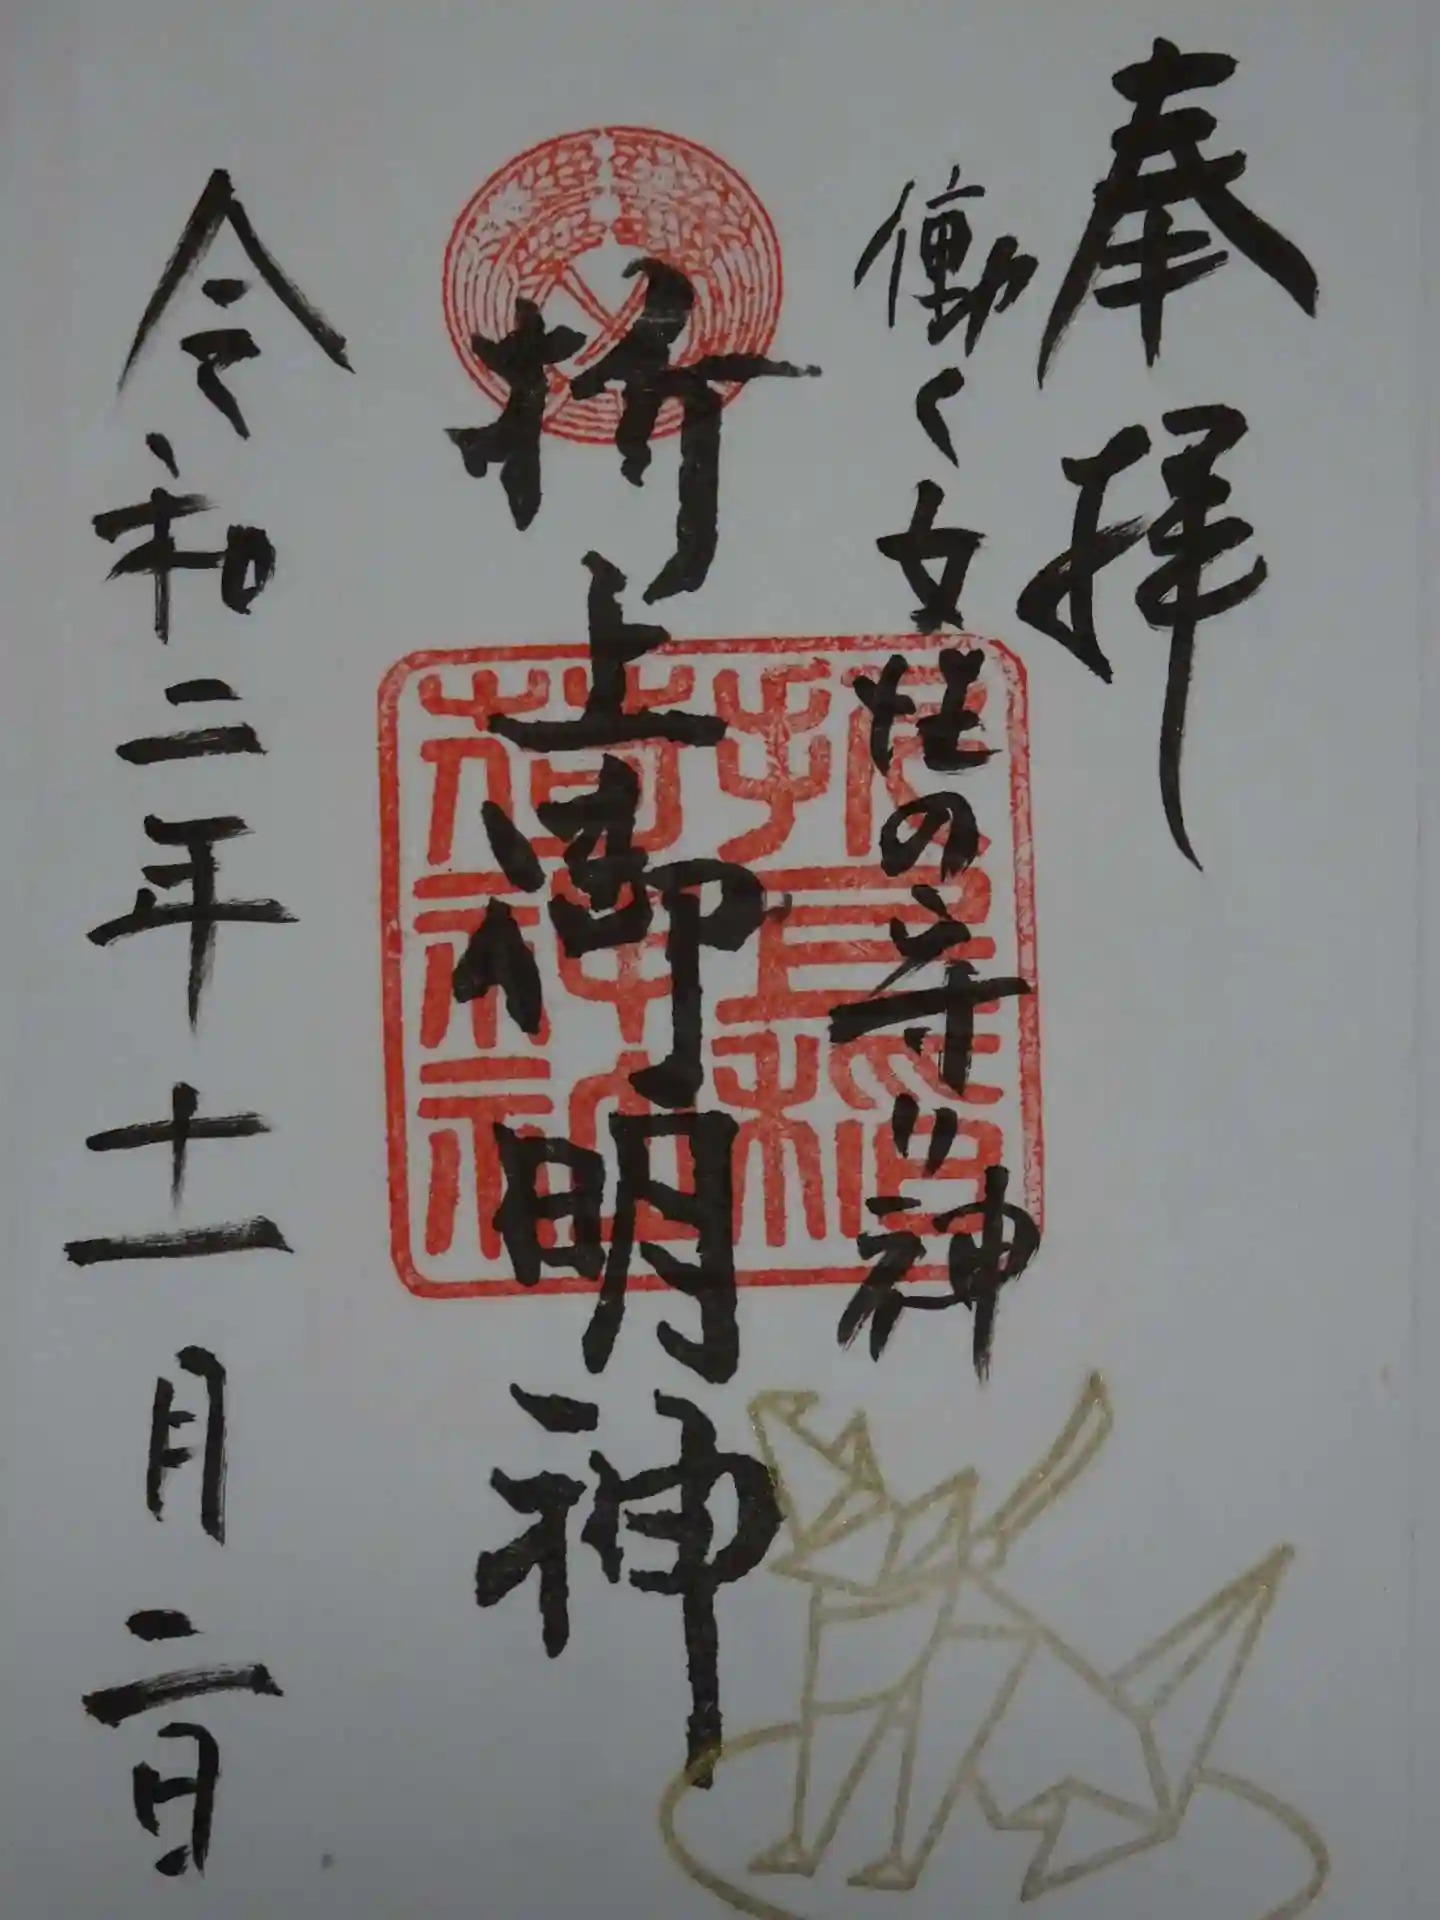 奉拝
働く女性の守り神
折上御明神
令和二年十一月二日
折上稲荷神社